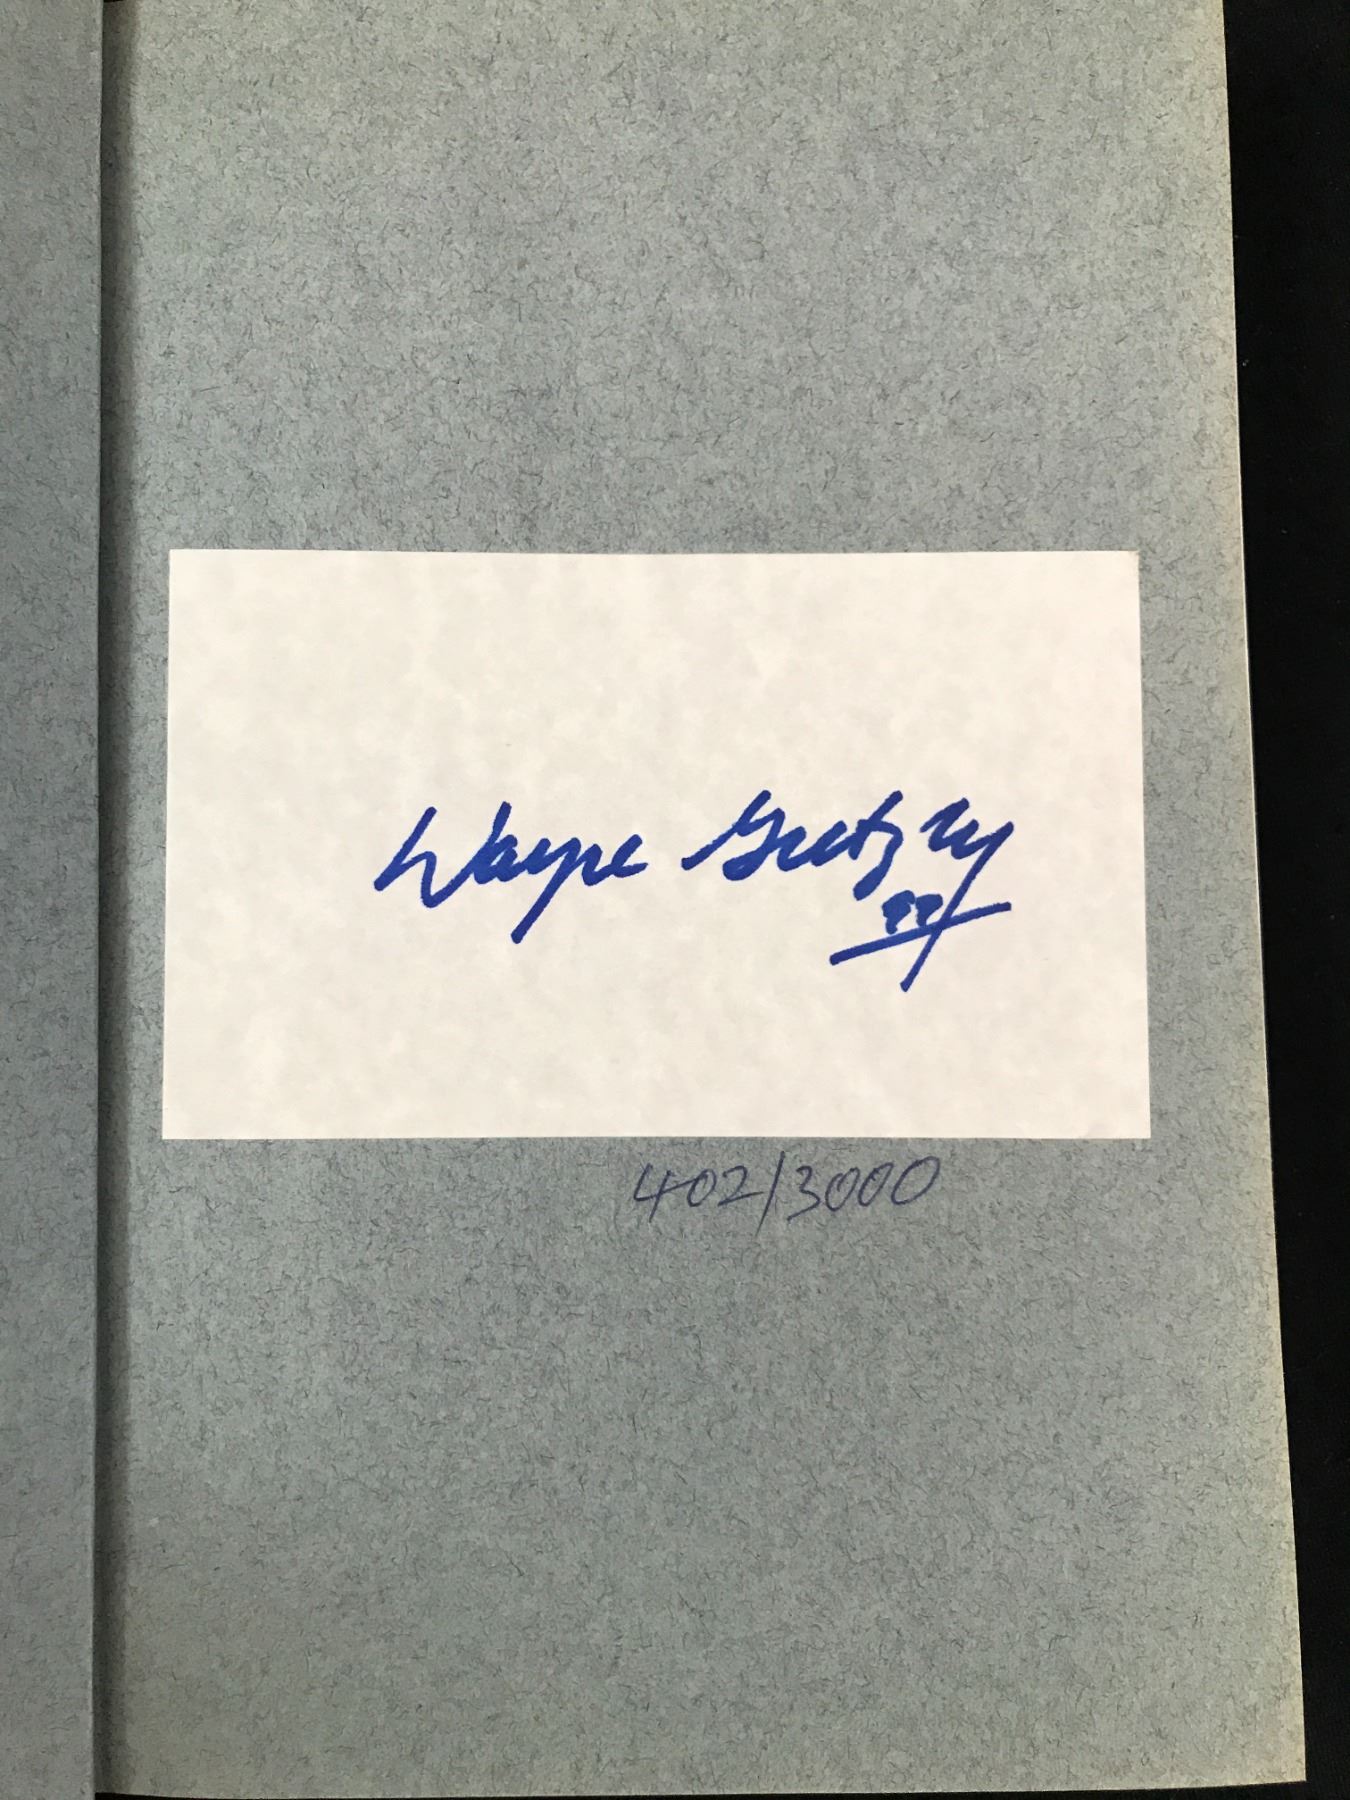 Wayne Gretzky
99
402/3000